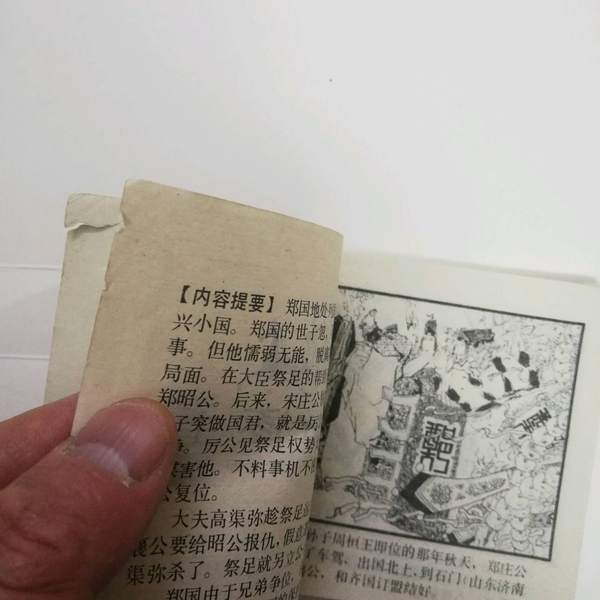 【内容提要】 郑国地处
兴小国。郑国的世子忽，
事。但他懦弱无能，脱离
局面。在大臣祭足的帮
郑昭公。后来，宋庄公
子突做国君，就是厉
厉公见祭足权势
害他。不料事机不
公复位。
大夫高渠弥趁祭足
襄公要给昭公报仇，假意
渠弥杀了。祭足就另立公
郑国由于兄弟争位，
孙子周桓王即位的那年秋天，郑庄公
了车驾，出国北上，到石门（山东济南
公，和齐国订盟结好。